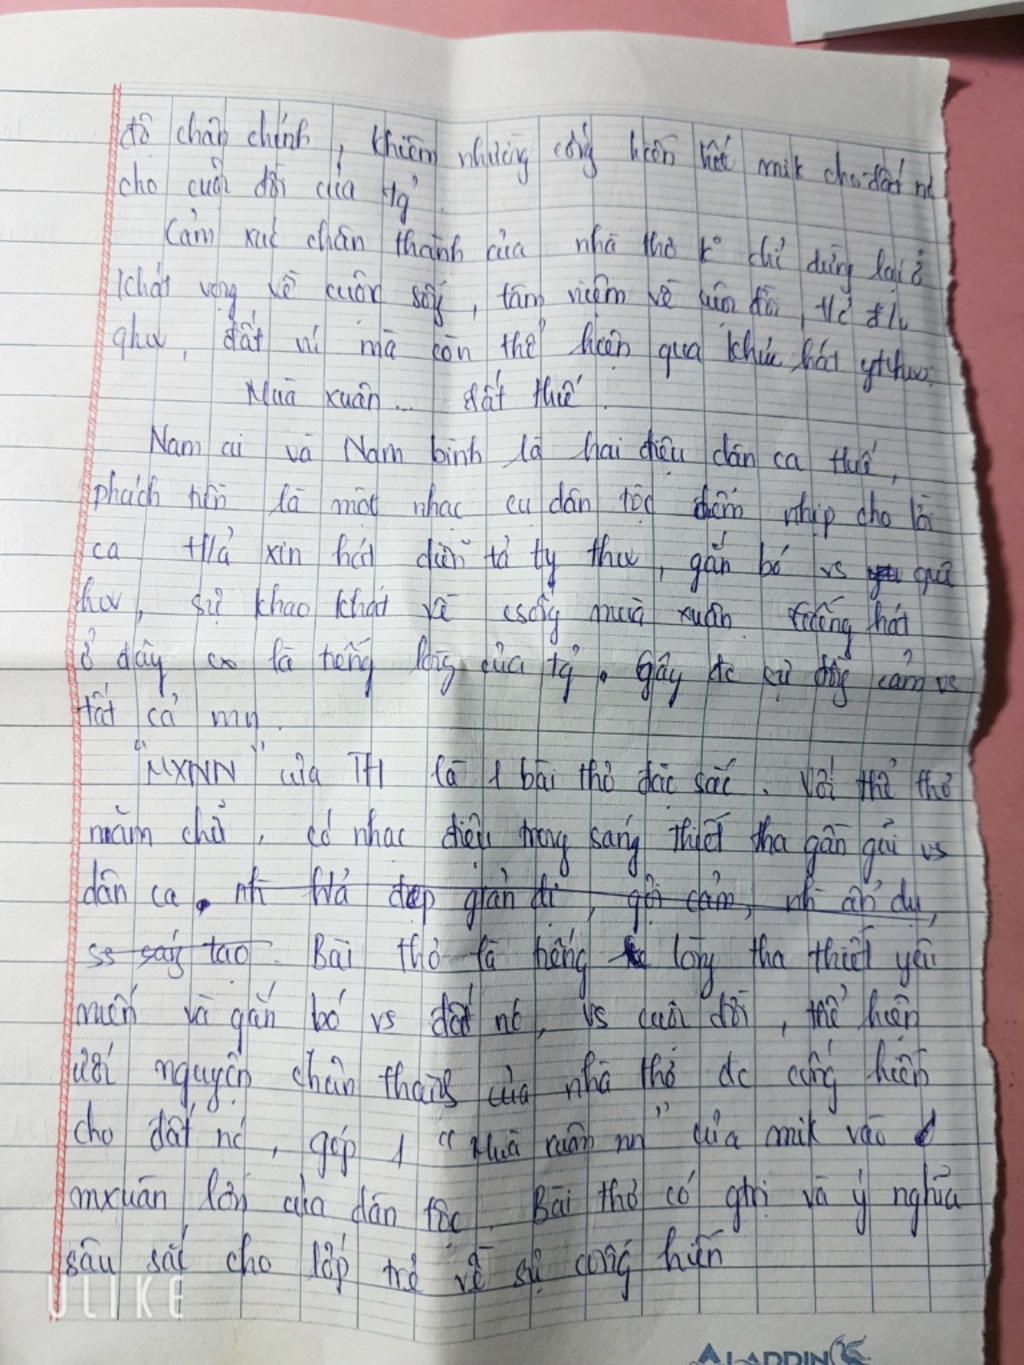 độ chân chính, khiêm nhường cống hiến hết mik cho đất nc
cho cuộc đời của tg.
Cảm xúc chân thành của nhà thơ k chỉ dừng lại ở
khát vọng về cuộc sống, tâm niệm về cuộc đời,
qhư, đất nc mà còn thể hiện qua khúc hát ythươ.
Mùa xuân... đất Huế.
Nam ai và Nam bình là hai điệu dân ca Huế,
phách tiền là một nhạc cụ dân tộc đếm nhịp cho lời
ca tgiả xin hát diễn tả ty thươ, gắn bó vs quê
hươ, sự khao khát về csống mùa xuân. tiếng hát
ở đây là tiếng lòng của tg. Gây đc sự đồng cảm vs
tất cả mng.
"MXNN" của TH là 1 bài thơ đặc sắc. Với thể thơ
năm chữ, có nhạc điệu trong sáng thiết tha gần gũi vs
dân ca. nh h/ả đẹp giản dị, gợi cảm, nh ẩn dụ,
ss sáng tạo. Bài thơ là tiếng lòng tha thiết yêu
mến và gắn bó vs đất nc, vs cuộc đời, thể hiện
ước nguyện chân thành của nhà thơ đc cống hiến
cho đất nc, góp 1 "Mùa xuân nn" của mik vào
mxuân lớn của dân tộc. Bài thơ có gtrị và ý nghĩa
sâu sắc cho lớp trẻ về sự cống hiến
ULIKE
ALADDIN